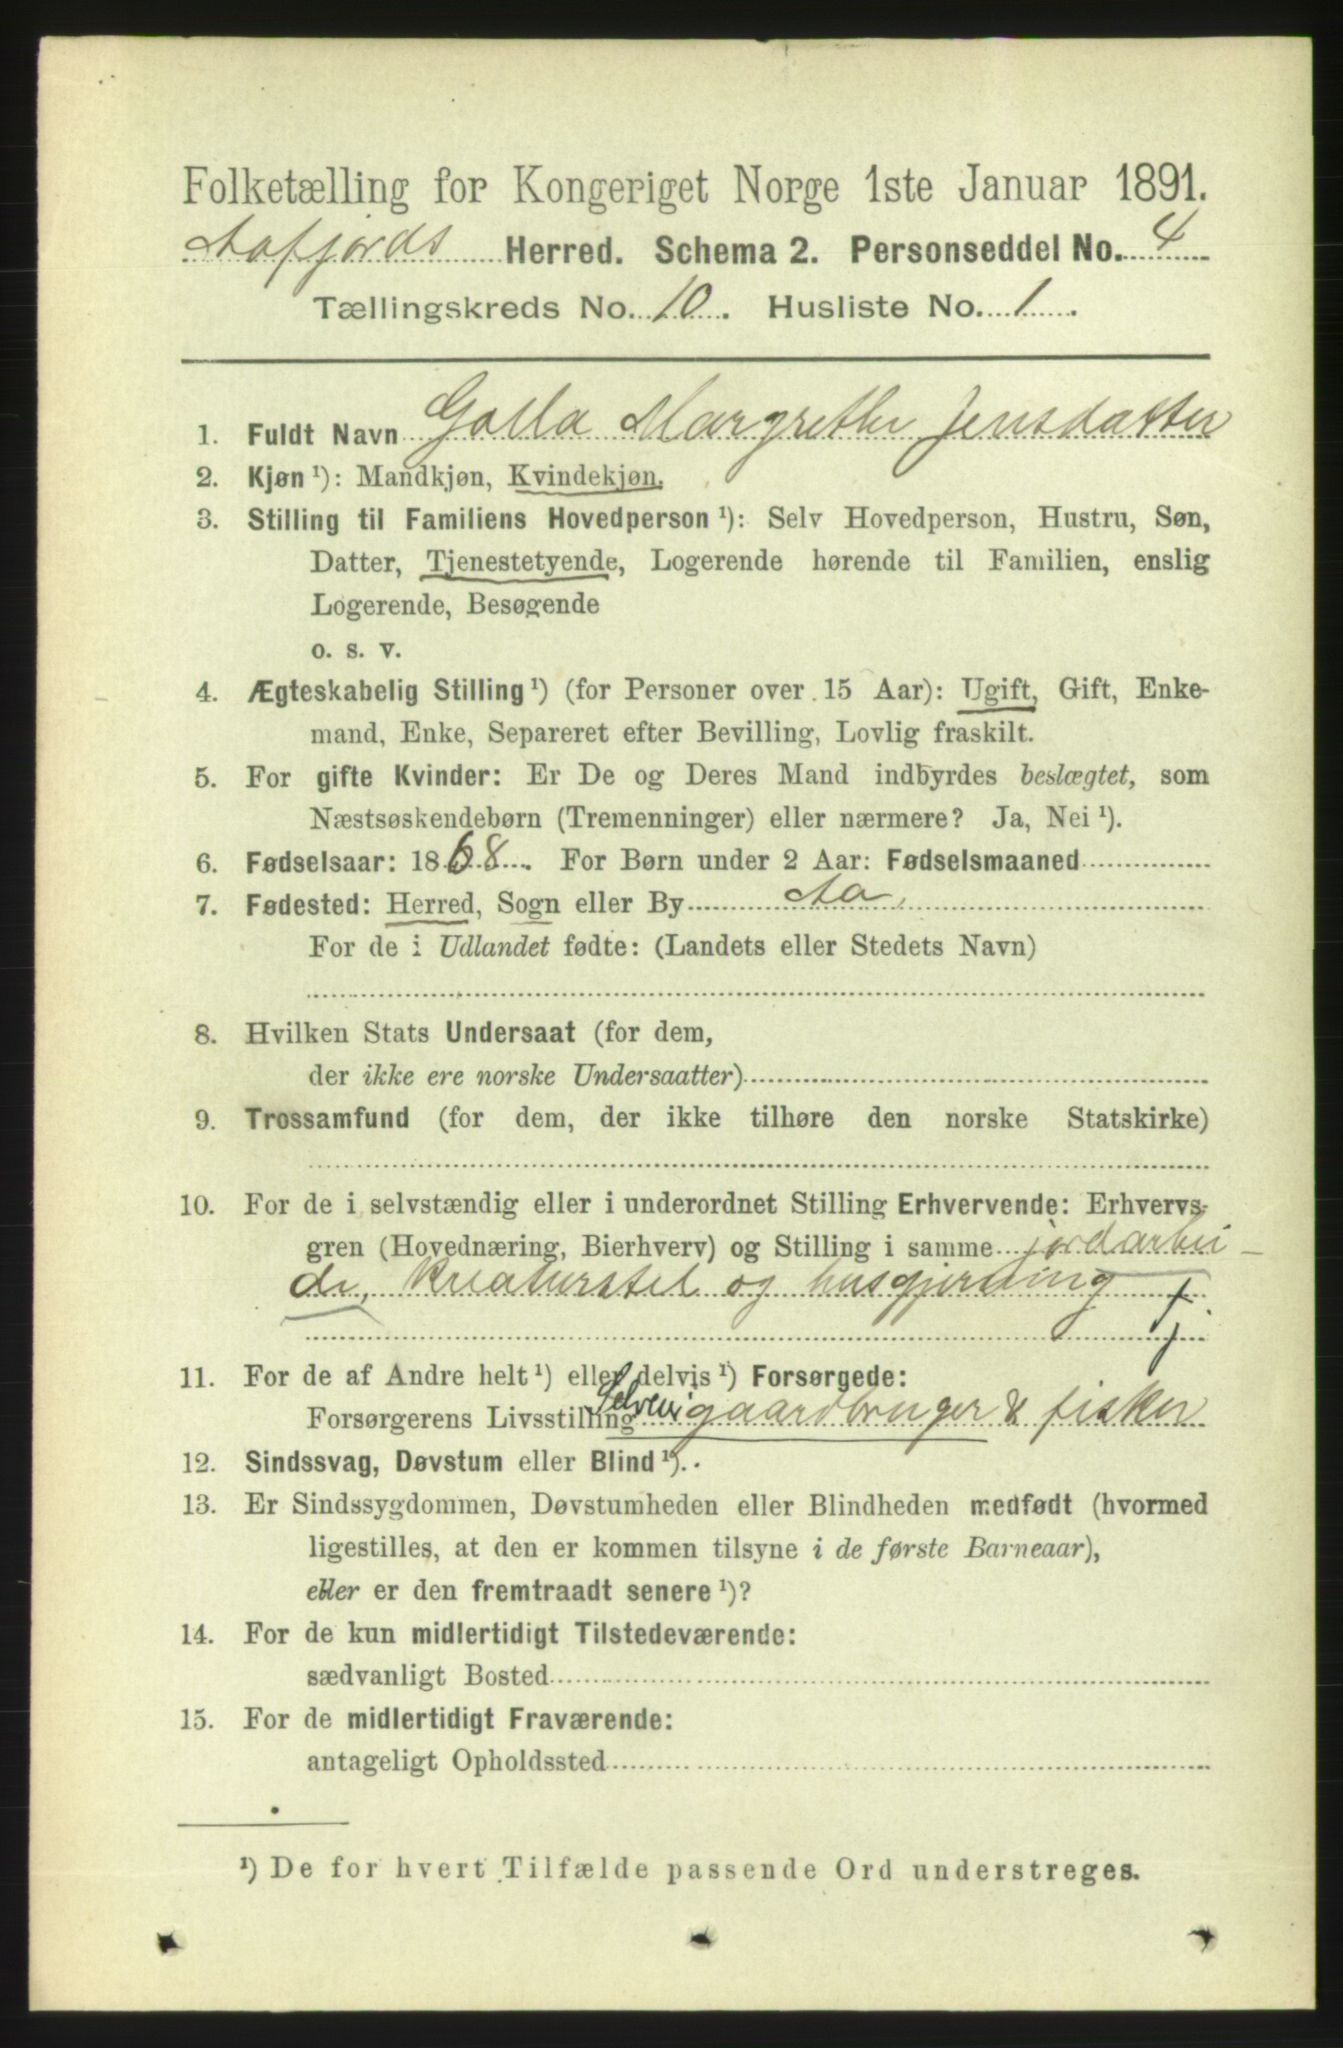 Folketælling for Kongeriget Norge 1ste Januar 1891.
Aafjords Herred. Schema 2. Personseddel No. 4
Tællingskreds No. 10. Husliste No. 1.
1. Fuldt Navn Golla Margrethe Jensdatter
2. Kjøn ¹): Mandkjøn, Kvindekjøn.
3. Stilling til Familiens Hovedperson ¹): Selv Hovedperson, Hustru, Søn,
Datter, Tjenestetyende, Logerende hørende til Familien, enslig
Logerende, Besøgende
o. s. v.
4. Ægteskabelig Stilling ¹) (for Personer over 15 Aar): Ugift, Gift, Enke-
mand, Enke, Separeret efter Bevilling, Lovlig fraskilt.
5. For gifte Kvinder: Er De og Deres Mand indbyrdes beslægtet, som
Næstsøskendebørn (Tremenninger) eller nærmere? Ja, Nei ¹).
6. Fødselsaar: 1868. For Børn under 2 Aar: Fødselsmaaned
7. Fødested: Herred, Sogn eller By Aa
For de i Udlandet fødte: (Landets eller Stedets Navn)
8. Hvilken Stats Undersaat (for dem,
der ikke ere norske Undersaatter)
9. Trossamfund (for dem, der ikke tilhøre den norske Statskirke)
10. For de i selvstændig eller i underordnet Stilling Erhvervende: Erhvervs-
gren (Hovednæring, Bierhverv) og Stilling i samme jordarbei-
de, kreaturstel og husgjerning
tj.
11. For de af Andre helt ¹) eller delvis ¹) Forsørgede:
Forsørgerens Livsstilling Selveig gaardbruger & fisker
12. Sindssvag, Døvstum eller Blind ¹).
13. Er Sindssygdommen, Døvstumheden eller Blindheden medfødt (hvormed
ligestilles, at den er kommen tilsyne i de første Barneaar),
eller er den fremtraadt senere ¹)?
14. For de kun midlertidigt Tilstedeværende:
sædvanligt Bosted
15. For de midlertidigt Fraværende:
antageligt Opholdssted
¹) De for hvert Tilfælde passende Ord understreges.